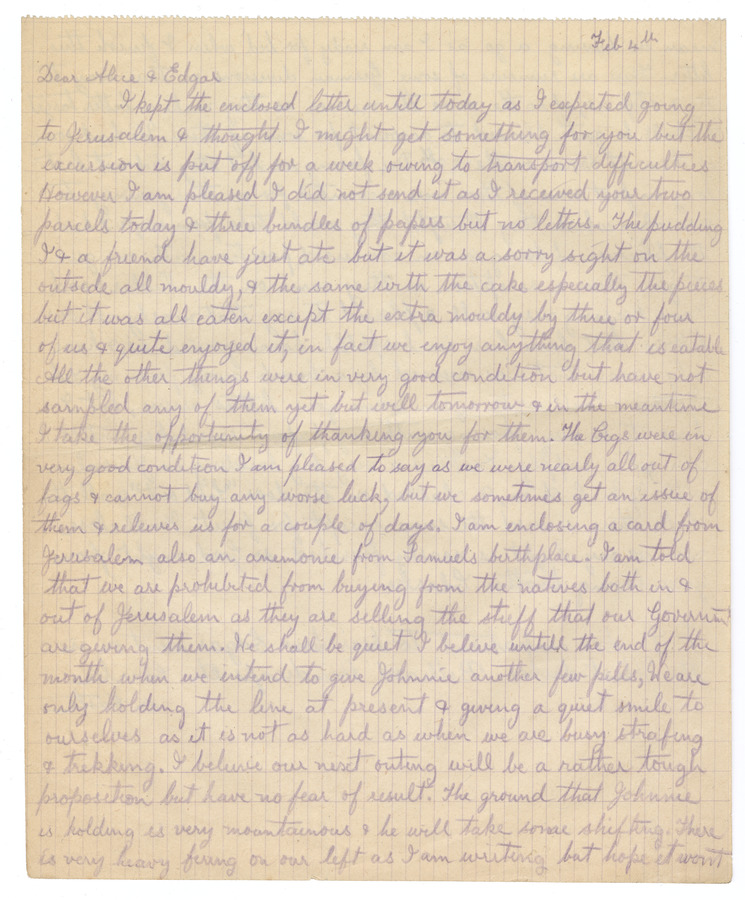 Feb 4th
Dear Alice & Edgar
I kept the enclosed letter untill today as I expected going
to Jerusalem & thought I might get something for you but the
excursion is put off for a week owing to transport difficulties
However I am pleased I did not send it as I received your two
parcels today & three bundles of papers but no letters. The pudding
I & a friend have just ate but it was a sorry sight on the
outside all mouldy, & the same with the cake especially the pieces
but it was all eaten except the extra mouldy by three or four
of us & quite enjoyed it, in fact we enjoy anything that is eatable
All the other things were in very good condition but have not
sampled any of them yet but will tomorrow & in the meantime
I take the opportunity of thanking you for them. The Cigs were in
very good condition I am pleased to say as we were nearly all out of
fags & cannot buy any worse luck, but we sometimes get an issue of
them & releives us for a couple of days. I am enclosing a card from
Jerusalem also an anemonie from Samuels birthplace. I am told
that we are prohibited from buying from the natives both in &
out of Jerusalem as they are selling the stuff that our Governmt
are giving them. We shall be quiet I beleive untill the end of the
month when we intend to give Johnnie another few pills, We are
only holding the line at present & giving a quiet smile to
ourselves as it is not as hard as when we are busy strafing
& trekking. I beleive our next outing will be a rather tough
proposition but have no fear of result. The ground that Johnnie
is holding is very mountainous & he will take some shifting. There
is very heavy firing on our left as I am writing but hope it wont